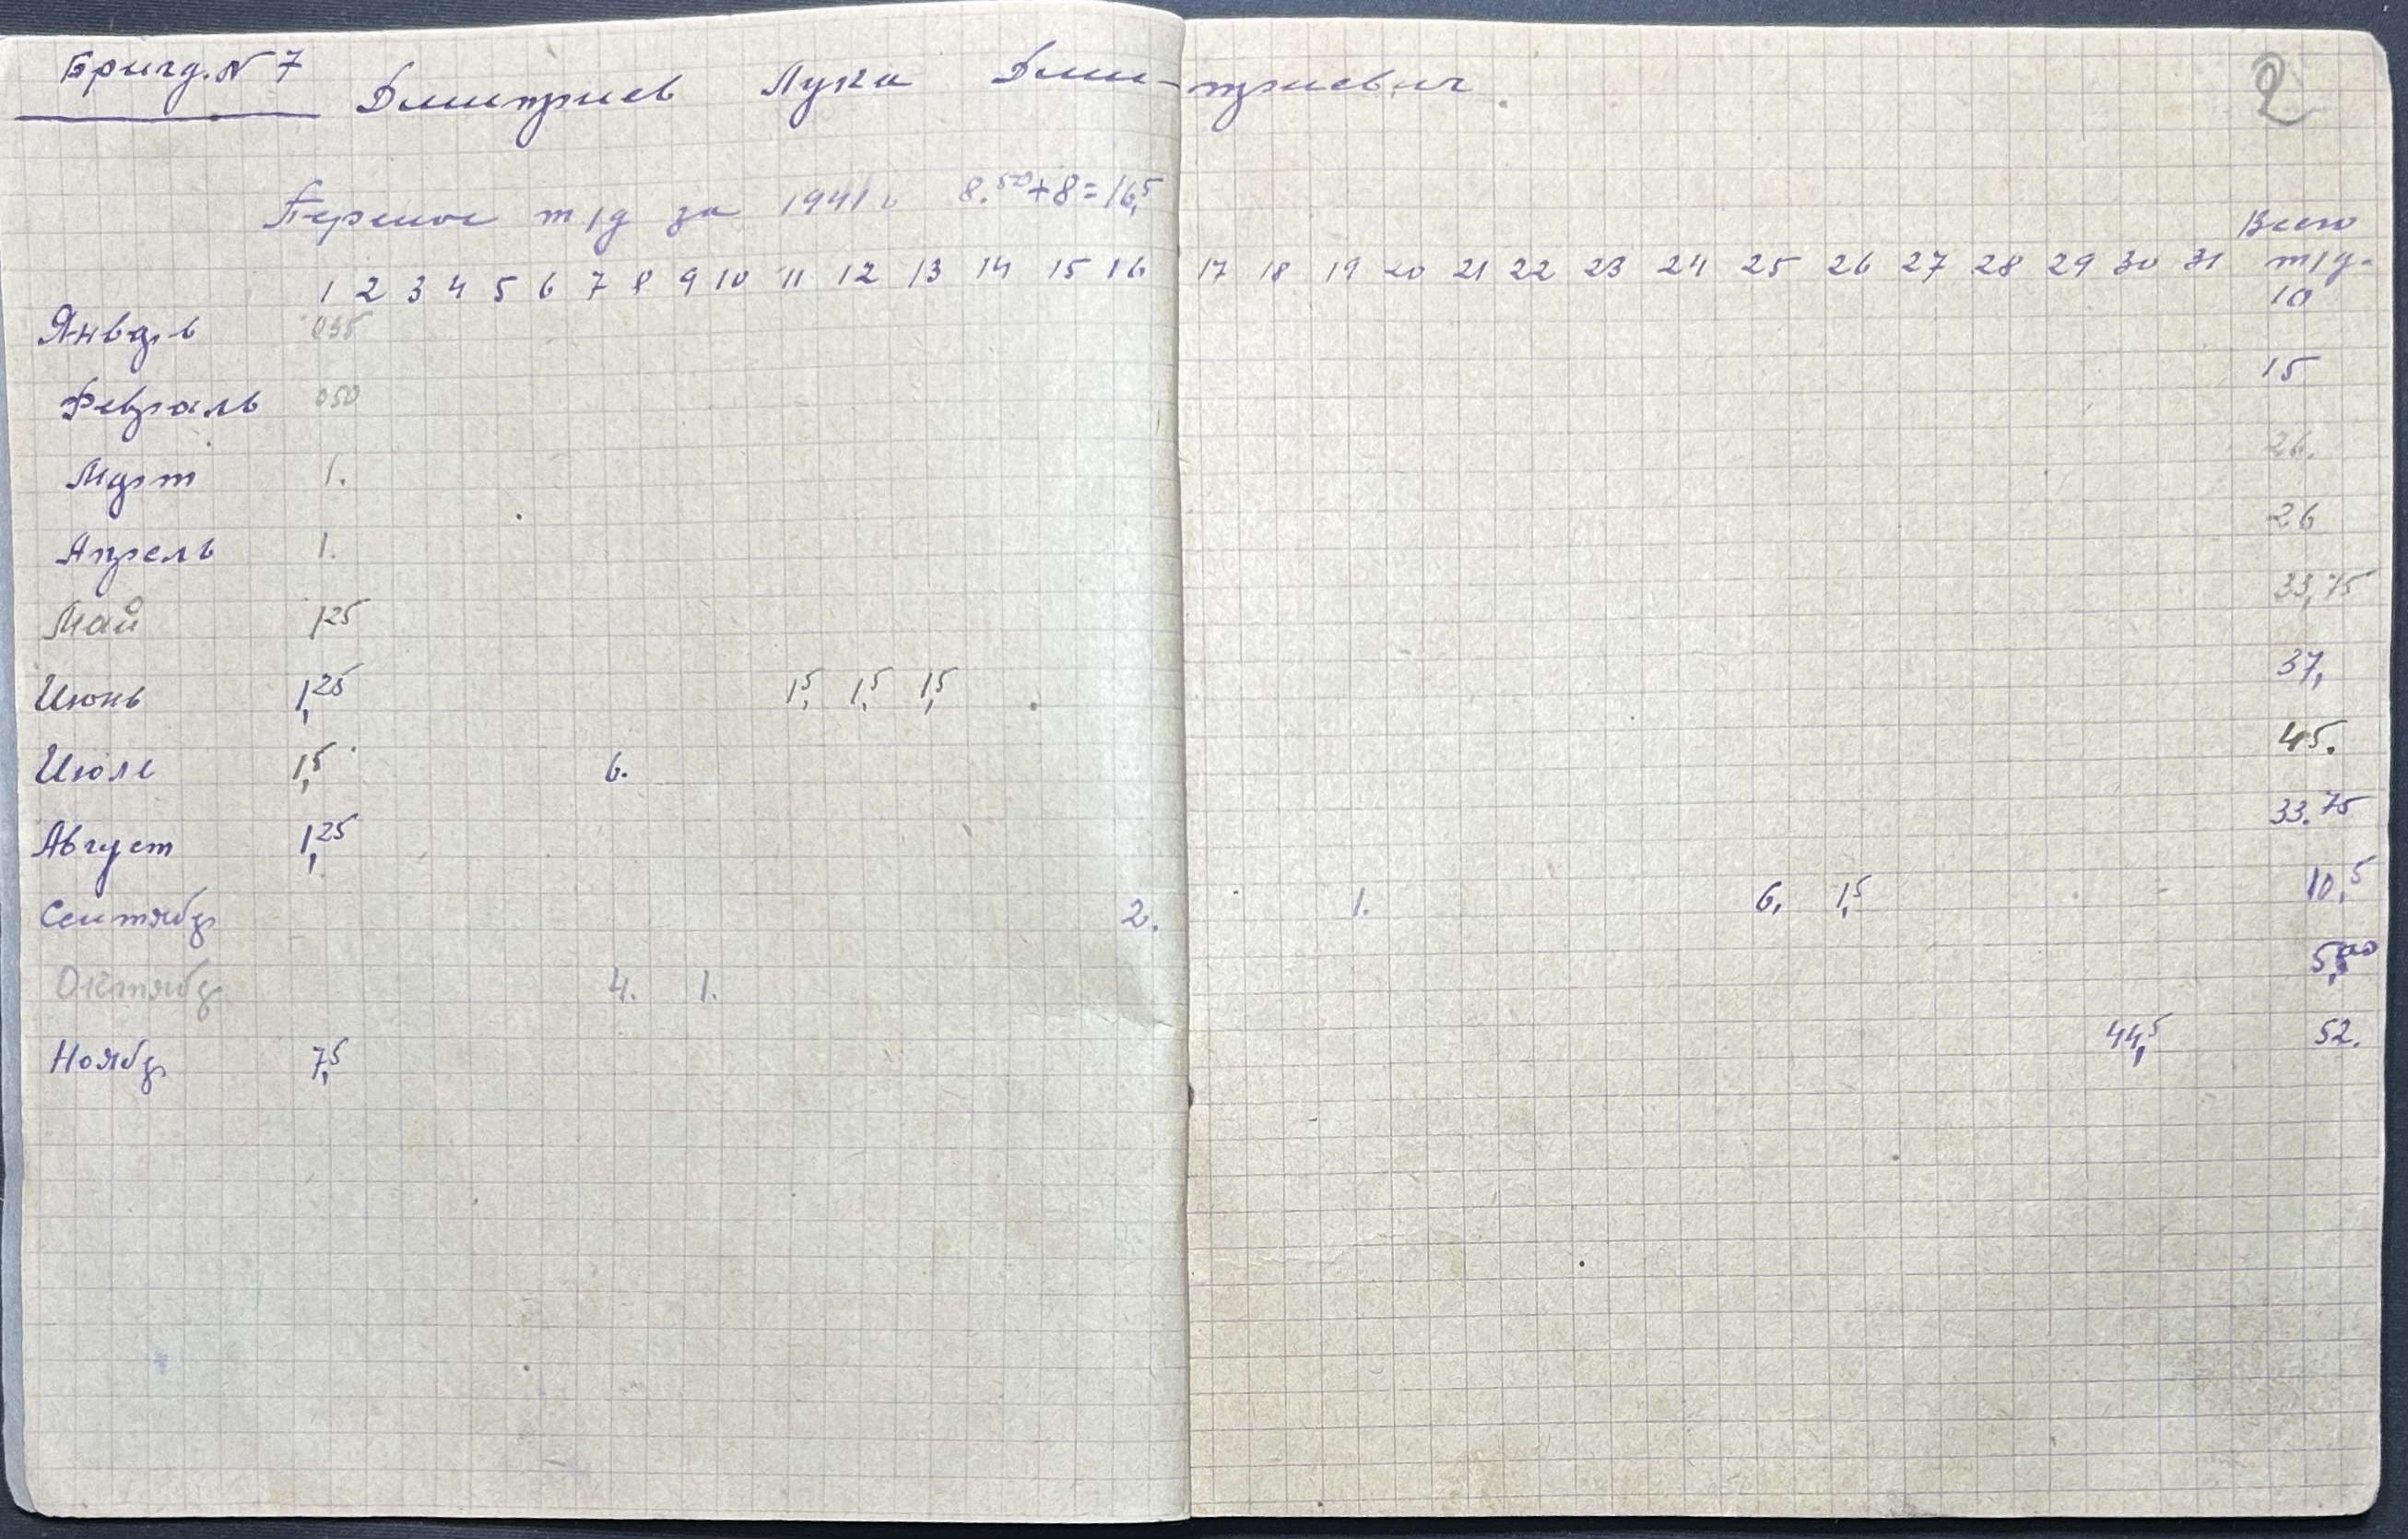 Бригд. № 7
2
Дмитриев Лука Дмитриевич
Перенос т/д за 1941 г 8.50+8=16,5
Всего
1 2 3 4 5 6 7 8 9 10 11 12 13 14 15 16 17 18 19 20 21 22 23 24 25 26 27 28 29 30 31 т/д.
Январь 035 10
Февраль 050 15
Март 1. 26.
Апрель 1. 26
Май 1 25 33,75
Июнь 1,25 1,5 1,5 1,5 37,
Июле 1,5 6. 45.
Август 1,25 33.75
Сентябр 2. 1. 6, 1,5 10,5
Октябр 4. 1. 5,00
Ноябр 7,5 44,5 52.